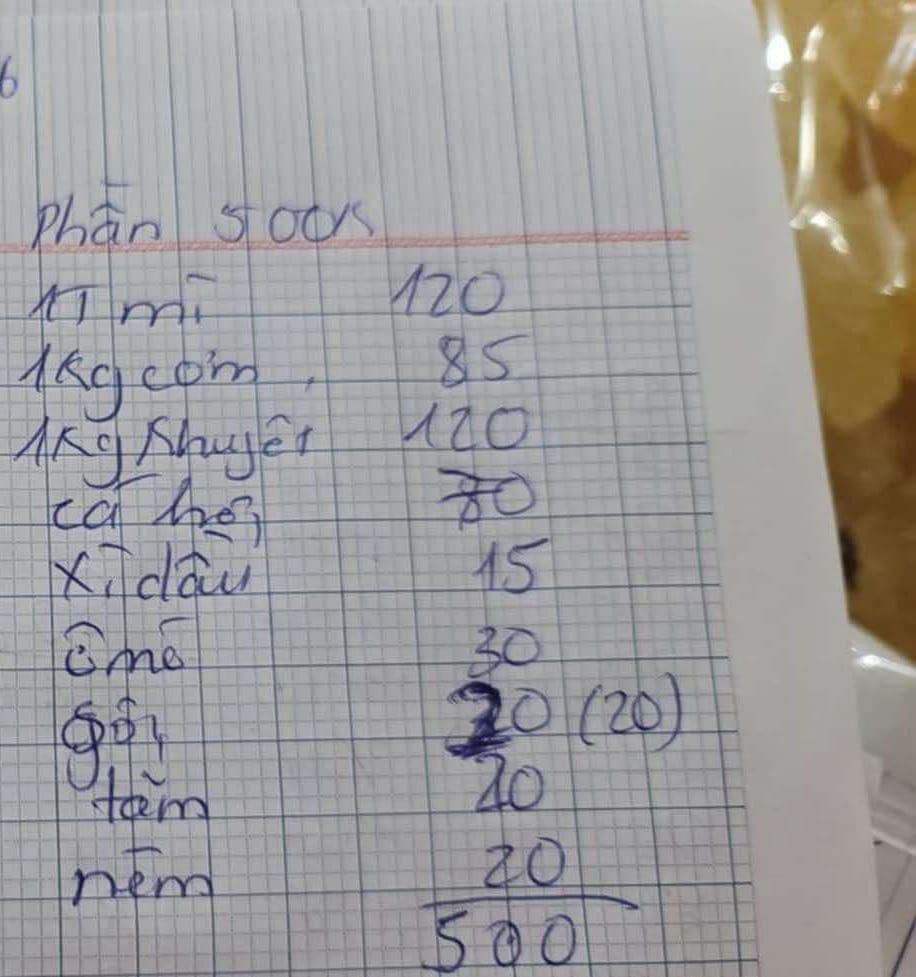 6
Phần 500K
1T mì 120
1Kg cơm, 85
1Kg Khuyết 120
cá hộp 70
xì dầu 15
ômô 30
gội 20 (20)
tắm 20
nêm 20
500